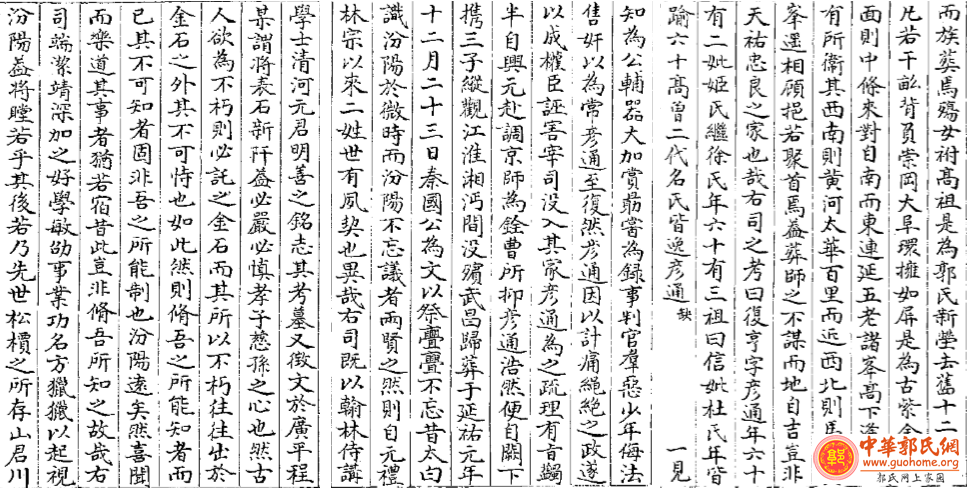 而族葬焉殤女祔髙祖是為郭氏新塋去舊十二
凡若干畝背負崇岡大阜環擁如屏是為古紫金
面則中條來對自南而東連延五老諸峯髙下
有所衛其西南則黄河太華百里而近西北則
峯遥相顧挹若聚首焉葢葬師之不謀而地自吉豈非
天祐忠良之家也哉右司之考曰復亨字彦通年六十
有二妣姬氏繼徐氏年六十有三祖曰信妣杜氏年皆
踰六十髙曾二代名氏皆逸彦通 缺 一見
知為公輔器大加賞勗嘗為録事判官羣惡少年侮法
售奸以為常彦通至復然彦通因以計痛䋲絶之政遂
以成權臣誣害宰司没入其家彦通為之疏理有旨蠲
半自興元赴調京師為銓曹所抑彦通浩然便自闕下
携三子縱觀江淮湘沔間没殯武昌歸葬于延祐元年
十二月二十三日秦國公為文以祭亹亹不忘昔太白
識汾陽於微時而汾陽不忘議者兩賢之然則自元禮
林宗以來二姓世有夙契也異哉右司既以翰林侍講
學士清河元君明善之銘志其考墓又徵文於廣平程
某謂將表石新阡葢必嚴必慎孝子慈孫之心也然古
人欲為不朽則必託之金石而其所以不朽往往出於
金石之外其不可恃也如此然則脩吾之所能知者而
已其不可知者固非吾之所能制也汾陽逺矣然喜聞
而樂道其事者猶若宿昔此豈非脩吾所知之故哉右
司端潔靖深加之好學敏劭事業功名方獵獵以起視
汾陽葢將瞠若乎其後若乃先世松檟之所存山君川
中華郭氏網
www.guohome.org
郭氏网上家园